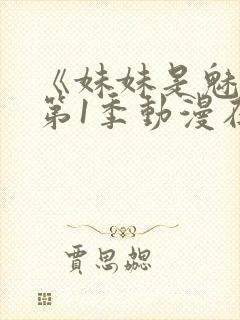 《妹妹是魅
第1季動漫在
賈思勰